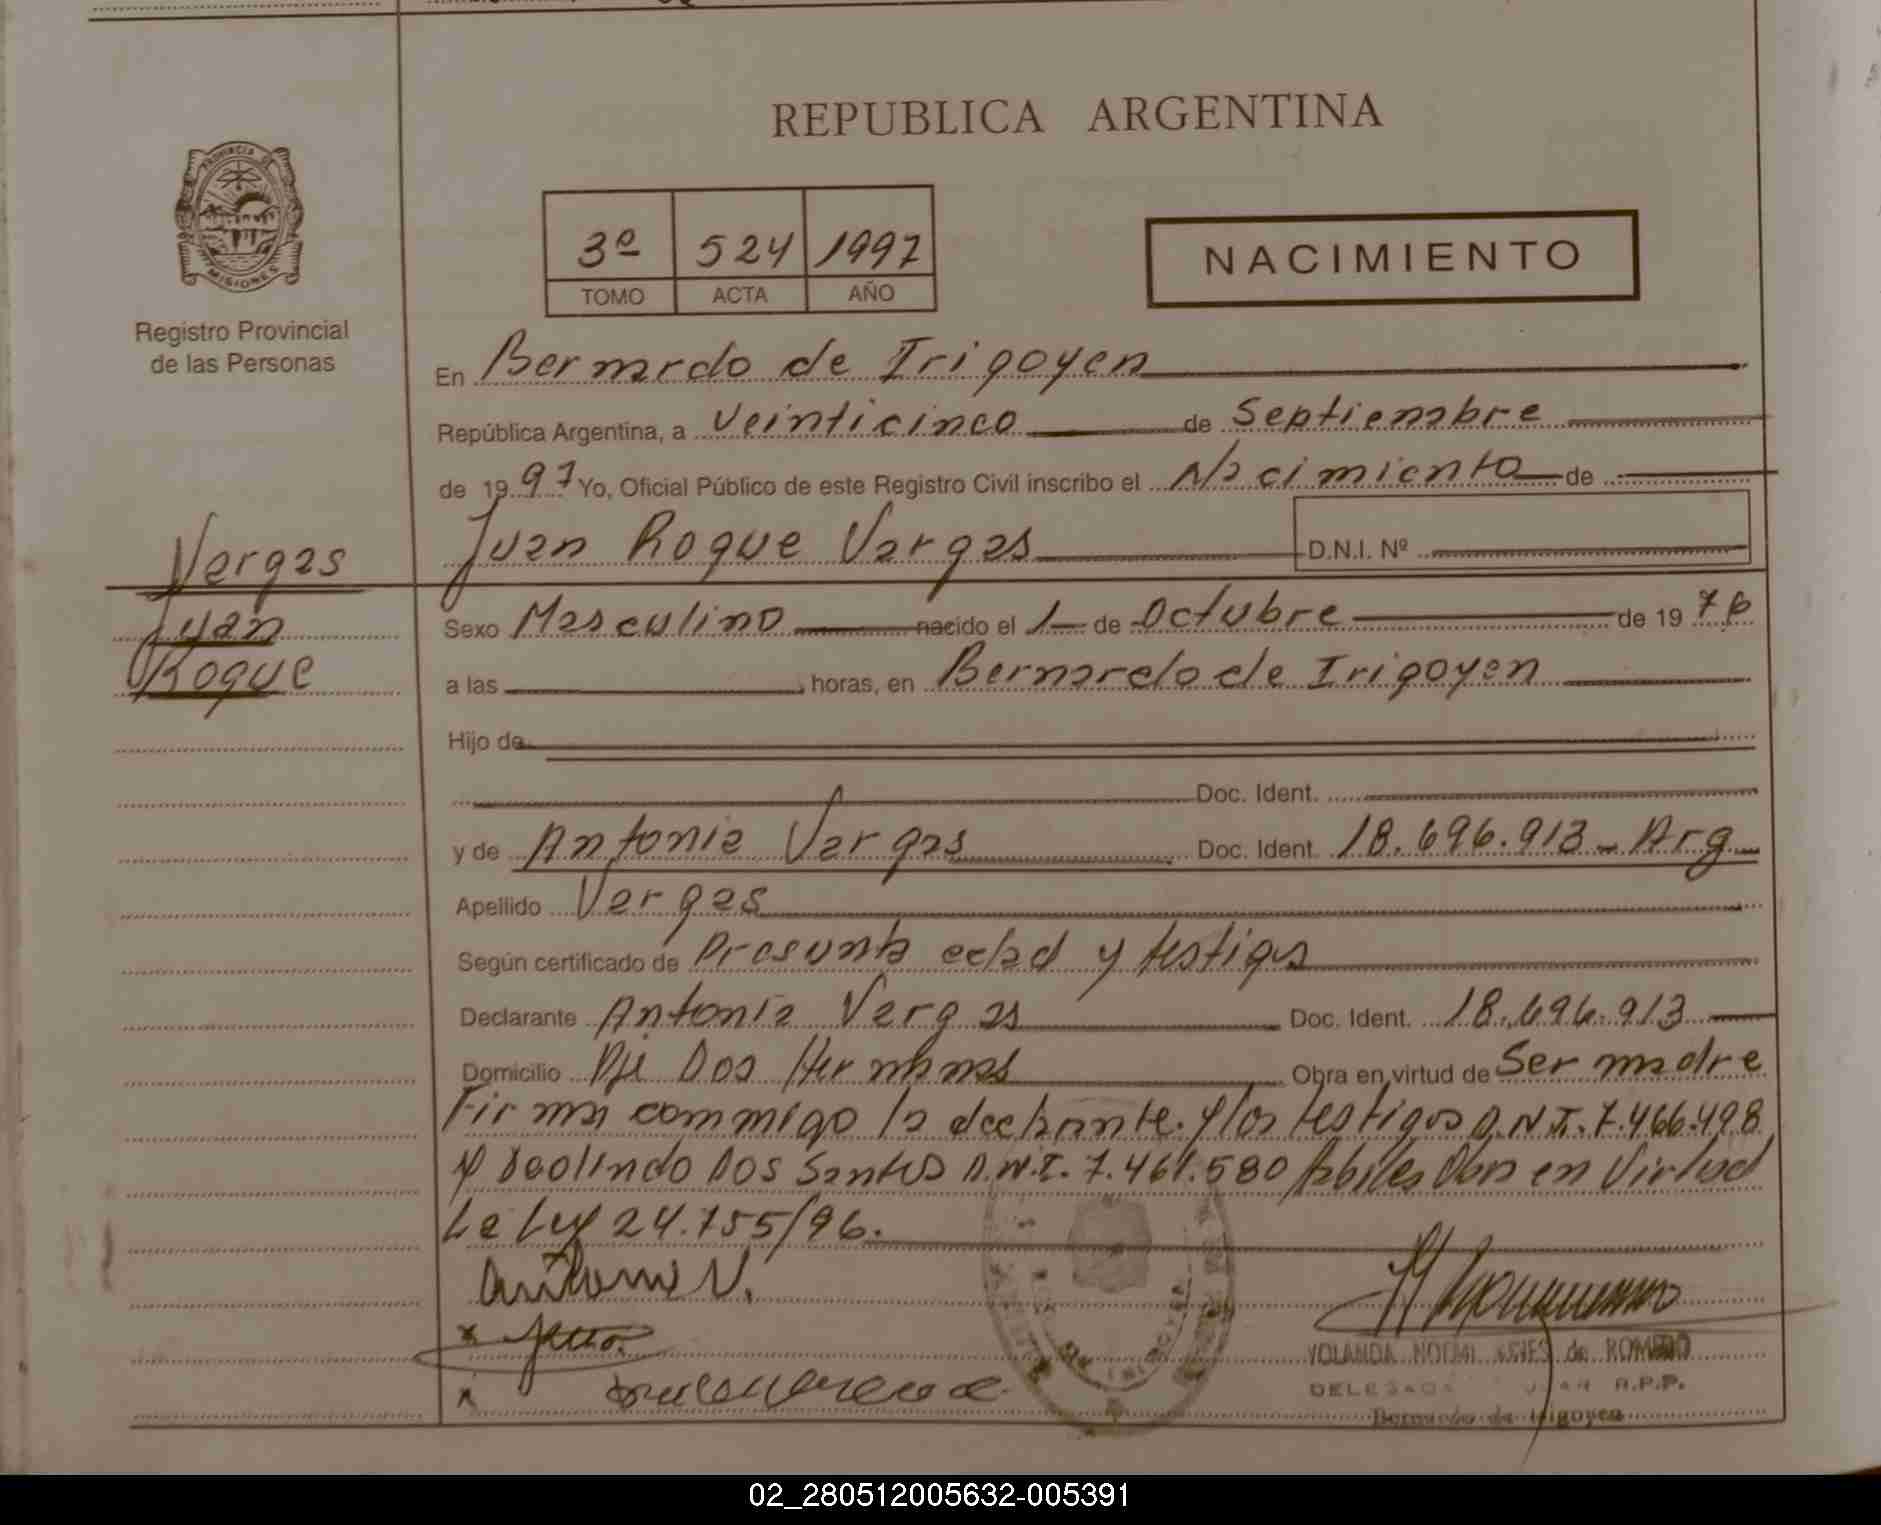 REPUBLICA ARGENTINA
PROVINCIA DE
MISIONES
Registro Provincial
de las Personas
3º 524 1997
TOMO ACTA AÑO
NACIMIENTO
En Bernardo de Irigoyen
República Argentina, a Veinticinco de Septiembre
de 1997 Yo, Oficial Público de este Registro Civil inscribo el Nacimiento de
Juan Roque Vargas D.N.I. Nº
Vargas
Juan
Roque
Sexo Masculino nacido el 1 de Octubre de 1976
a las horas, en Bernardo de Irigoyen
Hijo de
Doc. Ident.
y de Antonia Vargas Doc. Ident. 18.696.913 - Arg
Apellido Vargas
Según certificado de Presunta edad y testigos
Declarante Antonia Vargas Doc. Ident. 18.696.913
Domicilio Dos Hermanas Obra en virtud de Ser madre
Firma conmigo la declarante. y los testigos D.N.I. 7.466.498
y Deolindo Dos Santos D.N.I. 7.461.580 en Virtud
La Ley 24.755/96.
Antonia V.
YOLANDA de ROMERO
R.P.P.
Bernardo de Irigoyen
02_280512005632-005391